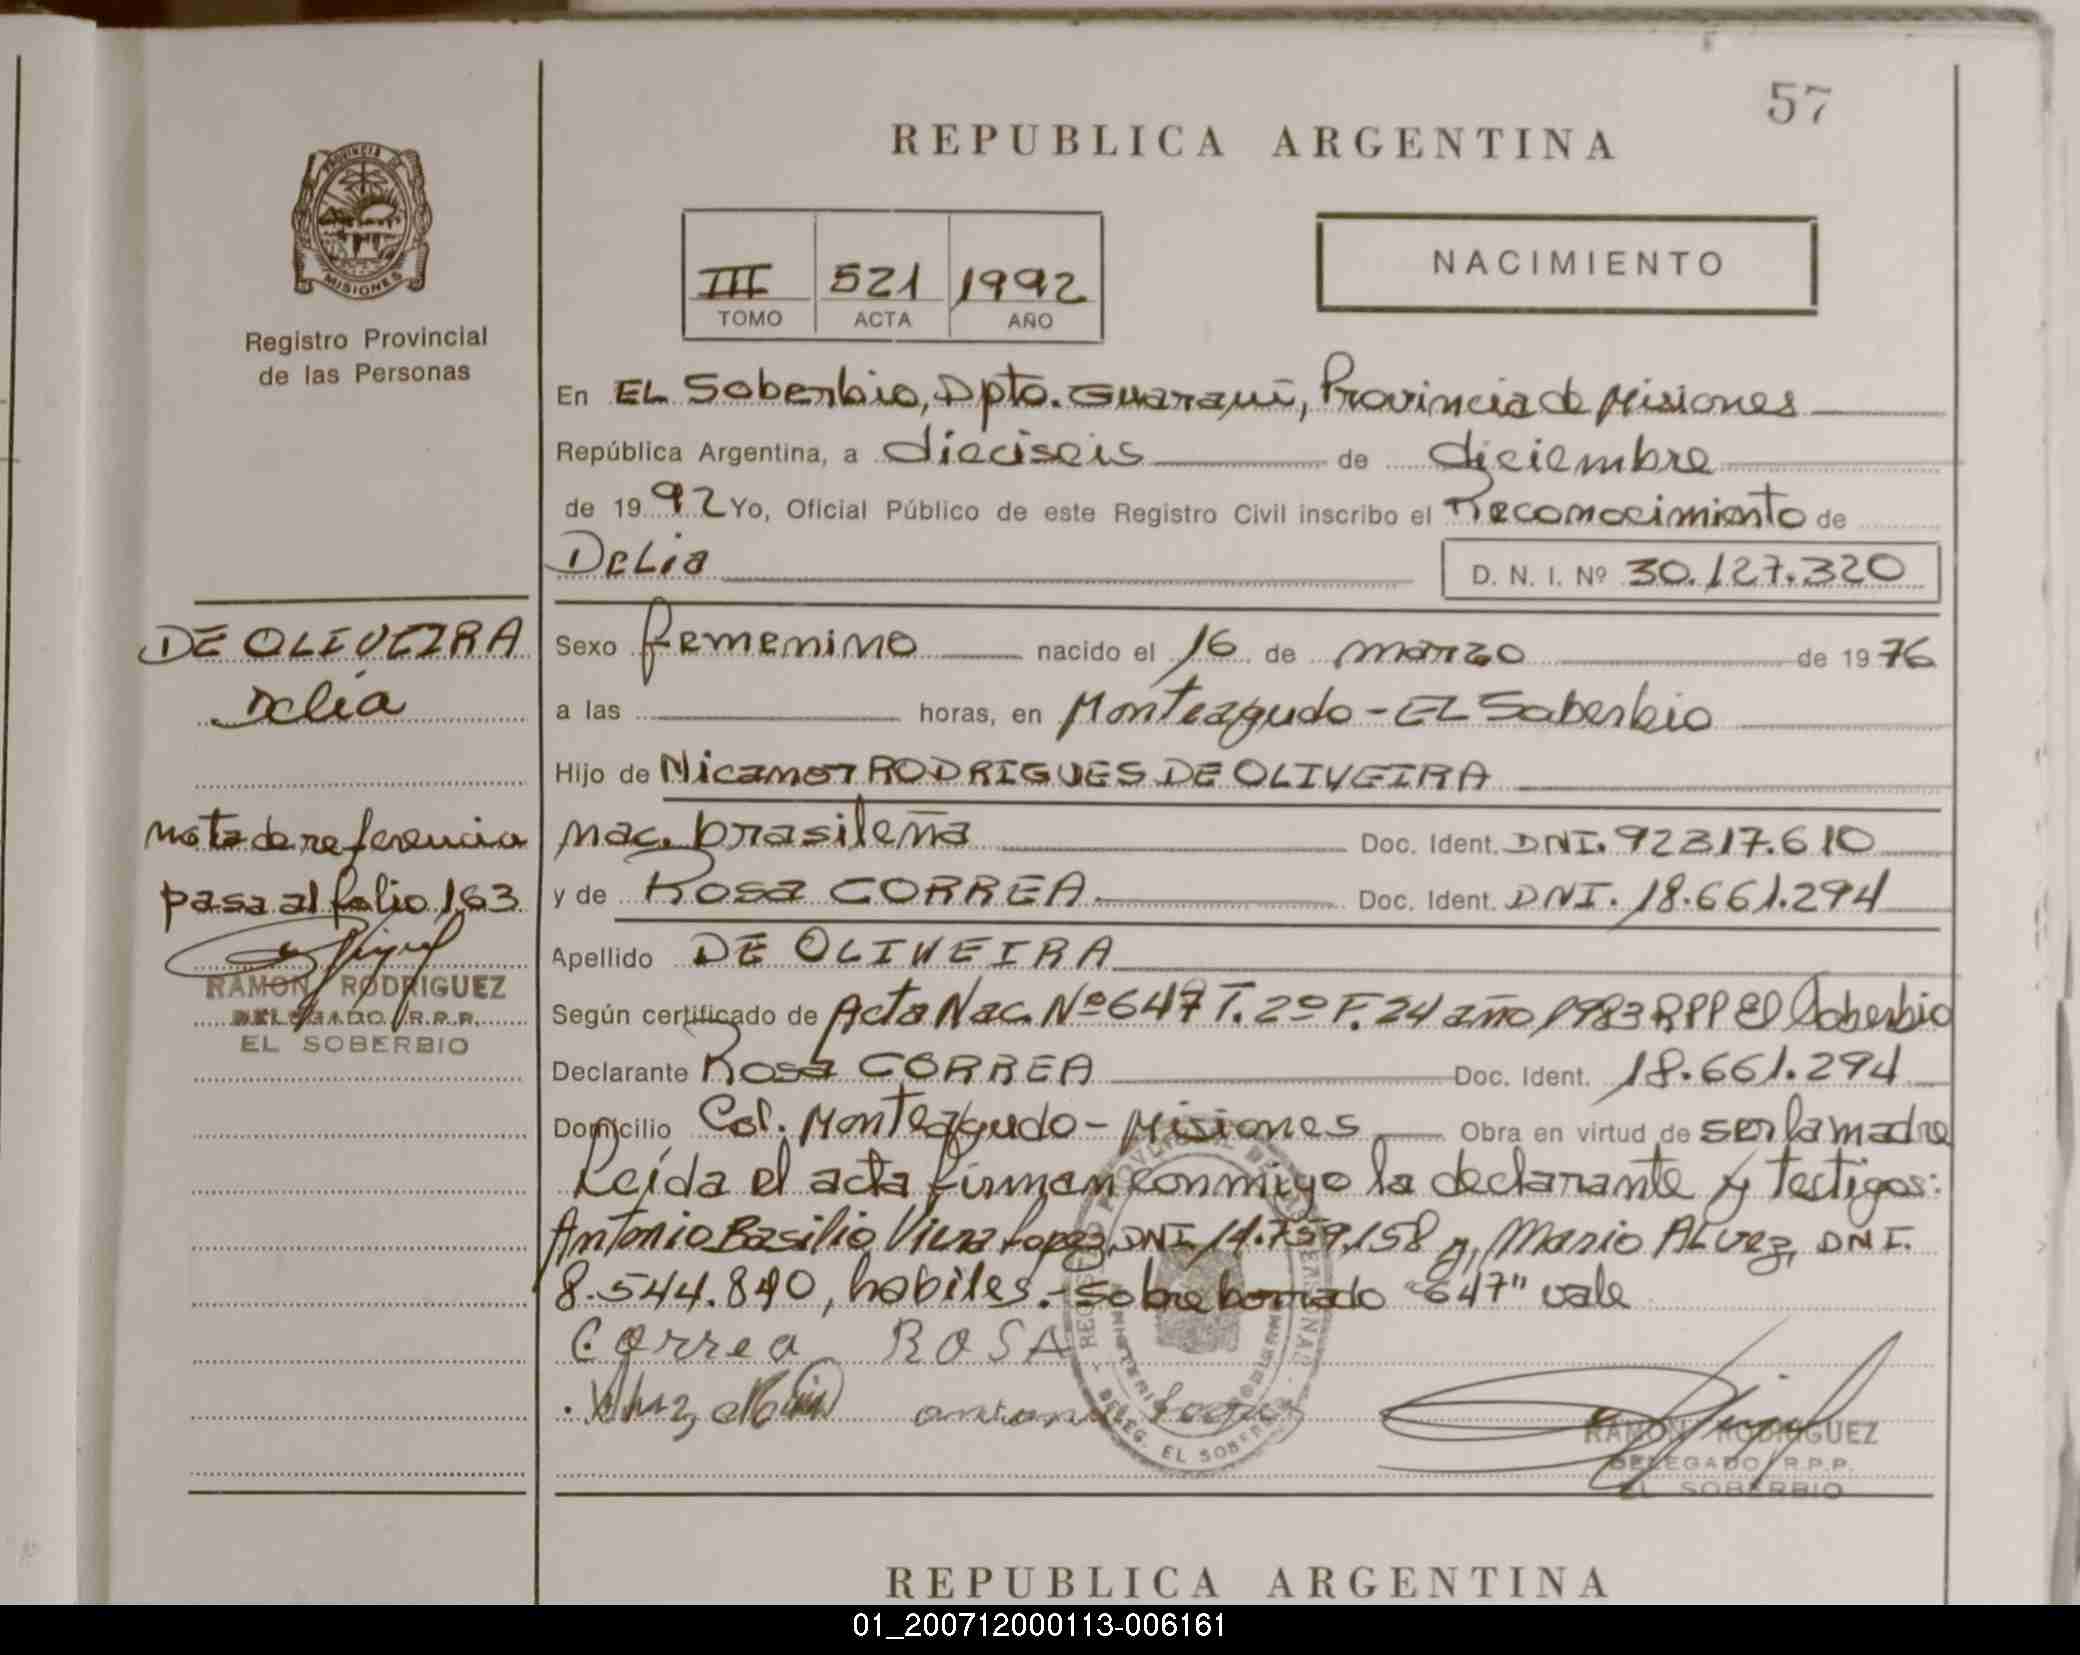 57
REPUBLICA ARGENTINA
PROVINCIA DE
MISIONES
Registro Provincial
de las Personas
III 521 1992
TOMO ACTA AÑO
NACIMIENTO
En EL Soberbio, Dpto. Guaraní, Provincia de Misiones
República Argentina, a dieciseis de diciembre
de 1992 Yo, Oficial Público de este Registro Civil inscribo el Reconocimiento de
Delia D. N. I. Nº 30.127.320
DE OLIVEIRA
Delia
Sexo femenino nacido el 16 de marzo de 1976
a las horas, en Monteagudo - EL Soberbio
Hijo de Nicanor RODRIGUES DE OLIVEIRA
nac. brasileña Doc. Ident. DNI. 92317.610
y de Rosa CORREA Doc. Ident. DNI. 18.661.294
nota de referencia
pasa al folio 163
RAMON RODRIGUEZ
DELEGADO R.P.P.
EL SOBERBIO
Apellido DE OLIVEIRA
Según certificado de Acta Nac. Nº 647 T. 2º F. 24 año 1983 RPP El Soberbio
Declarante Rosa CORREA Doc. Ident. 18.661.294
Domicilio Col. Monteagudo - Misiones Obra en virtud de ser la madre
Leída el acta firman conmigo la declarante y testigos:
Antonio Basilio Viera Lopez, DNI. 14.759.158 y, Mario ALvez, DNI.
8.544.840, habiles.- Sobre borrado "647" vale
Correa ROSA
RAMON RODRIGUEZ
DELEGADO R.P.P.
EL SOBERBIO
DELEG. EL SOBERBIO
REPUBLICA ARGENTINA
01_200712000113-006161